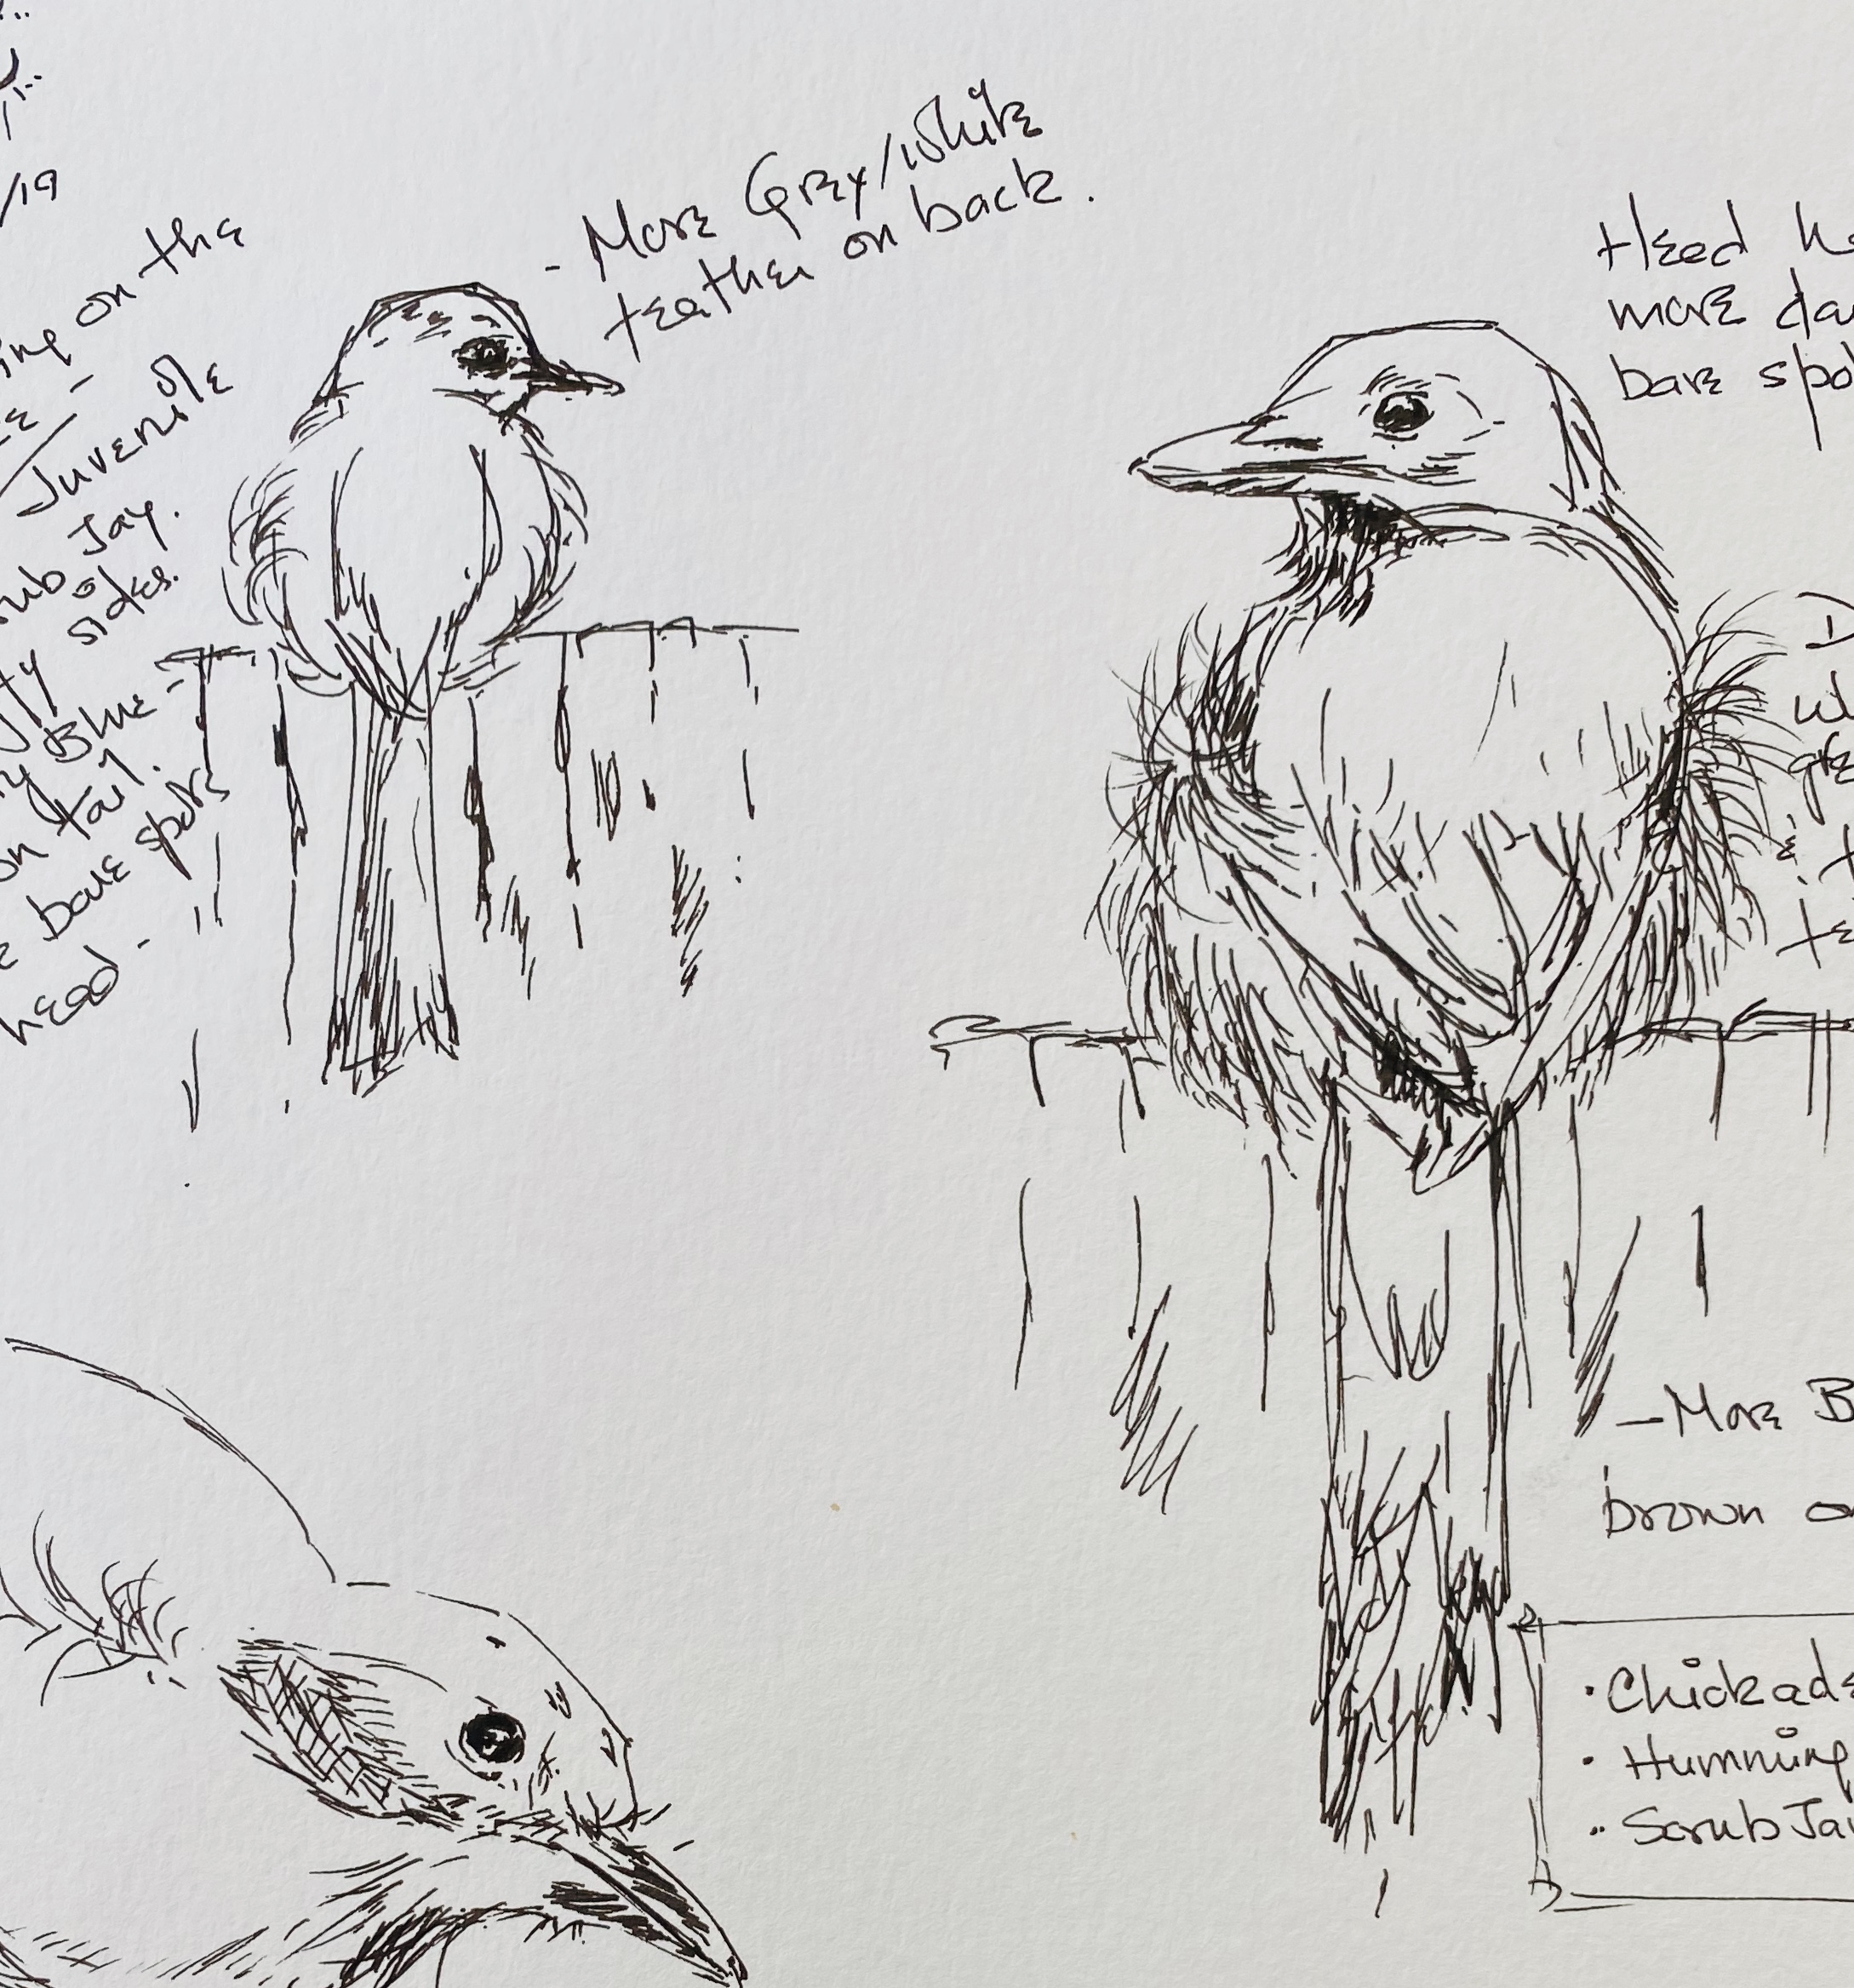 /19
ing on the
Juvenile
Jay.
sides.
Blue -
on tail.
bare spots
head -
- More Grey/White
feather on back.
Head ha
more da
bare spo
- More B
brown o
· Chickade
· Humming
·· Scrub Jay